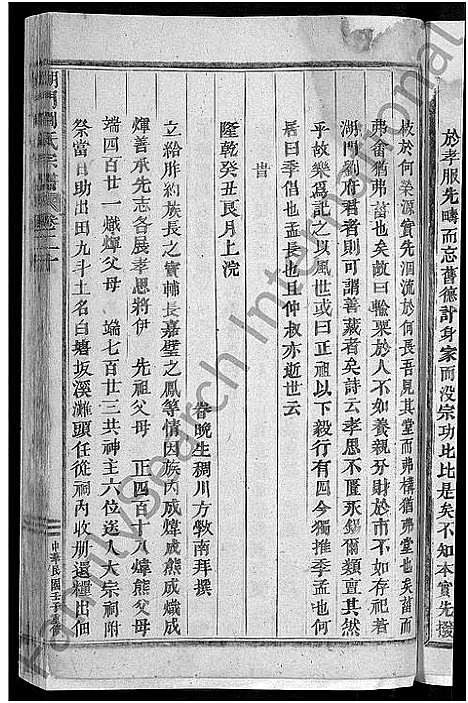 於孝服先疇而忘舊德計身家而没宗功比比是矣不知本實先撥
枝於何榮源實先涸流於何長吾見其堂而弗構猶弗堂也矣菑而
弗畬猶弗菑也矣故曰輸粟於人不如養親分財於市不如存祀若
湖門劉府君者則可謂善藏者矣詩云孝思不匱永錫爾類亶其然
乎故樂爲記之以風世或曰正祖以下毅行有四今獨推季孟也何
居曰季倡也孟長也且仲叔亦逝世云
旹
隆乾癸丑艮月上浣
眷晚生稠川方斆南拜撰
立給胙約族長之實輔長嘉璧之鳳等情因族內成煒成熊成熾成
煇善承先志各展孝思將伊 先祖父母 正四百十八煒熊父母
端四百廿一熾煇父母 端七百廿三共神主六位送入大宗祠附
祭當日助出田九斗土名白塘坂溪灘頭任從祠內收册還糧出佃
湖門劉氏宗譜 卷二十
中華民國壬子重修
FamilySearch International